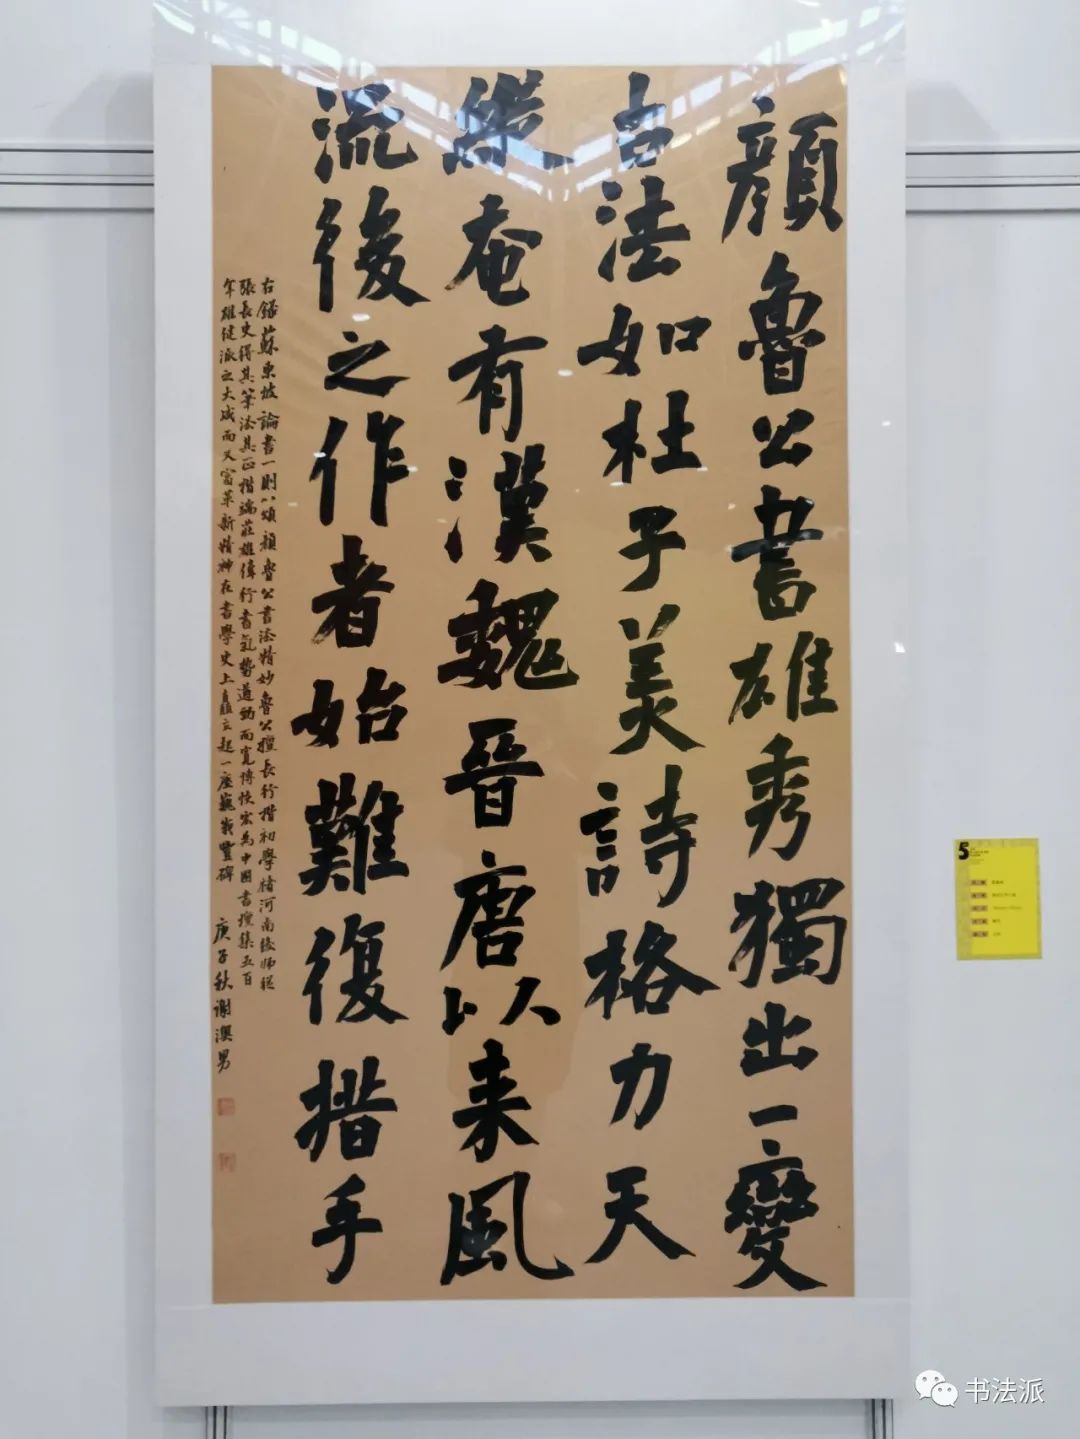 顔魯公書雄秀獨出一變
古法如杜子美詩格力天
縱奄有漢魏晉唐以来風
流後之作者始難復措手
右録蘇東坡論書一則以頌顔魯公書法精妙魯公擅長行楷初學褚河南後師從
張長史得其筆法其正楷端莊雄偉行書氣勢遒勁而寬博恢宏爲中國書壇集五百
年雄健派之大成而又富革新精神在書學史上矗立起一座巍峩豐碑
庚子秋謝澳男
5
书法派